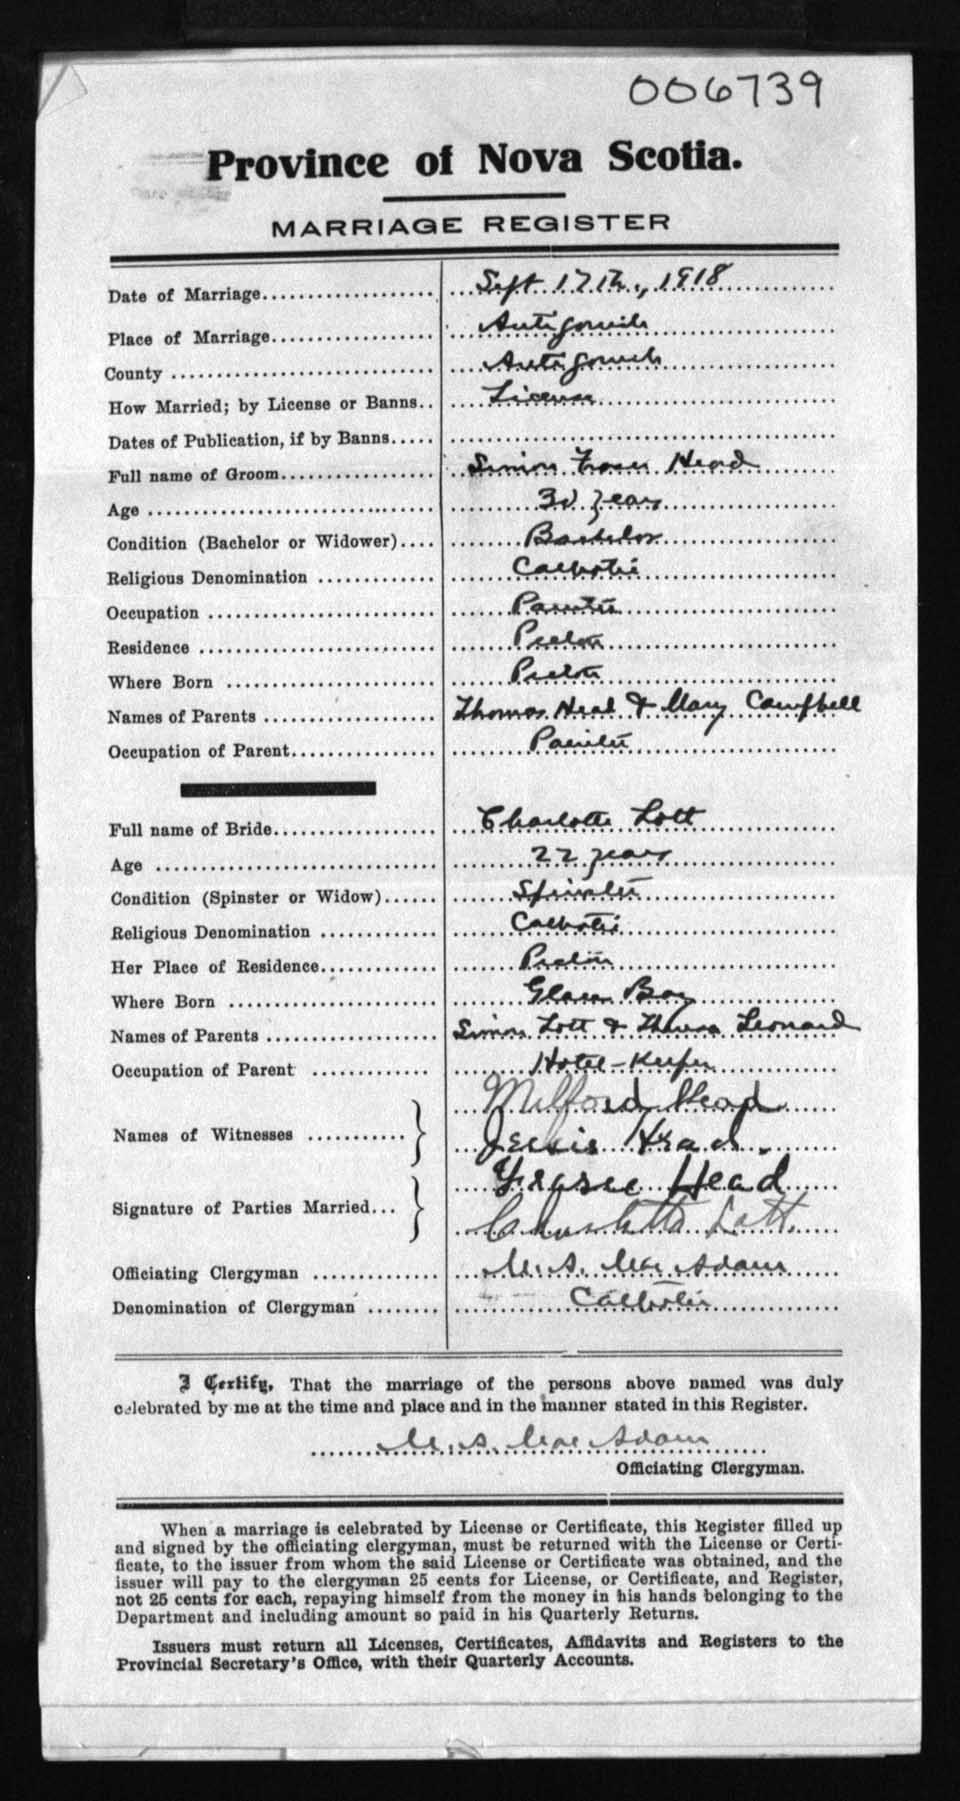 006739
Province of Nova Scotia.
MARRIAGE REGISTER
Date of Marriage Sept 17th, 1918
Place of Marriage Antigonish
County Antigonish
How Married; by License or Banns License
Dates of Publication, if by Banns
Full name of Groom Simon Fraser Head
Age 30 years
Condition (Bachelor or Widower) Bachelor
Religious Denomination Catholic
Occupation Painter
Residence Pictou
Where Born Pictou
Names of Parents Thomas Head & Mary Campbell
Occupation of Parent Painter
Full name of Bride Charlotte Lott
Age 22 years
Condition (Spinster or Widow) Spinster
Religious Denomination Catholic
Her Place of Residence Pictou
Where Born Glace Bay
Names of Parents Simon Lott & Theresa Leonard
Occupation of Parent Hotel-Keeper
Milford Head
Names of Witnesses Jessie Head.
Fraser Head
Signature of Parties Married Charlotte Lott.
Officiating Clergyman M. A. MacAdam
Denomination of Clergyman Catholic
I Certify, That the marriage of the persons above named was duly
celebrated by me at the time and place and in the manner stated in this Register.
M. A. MacAdam
Officiating Clergyman.
When a marriage is celebrated by License or Certificate, this Register filled up
and signed by the officiating clergyman, must be returned with the License or Certi-
ficate, to the issuer from whom the said License or Certificate was obtained, and the
issuer will pay to the clergyman 25 cents for License, or Certificate, and Register,
not 25 cents for each, repaying himself from the money in his hands belonging to the
Department and including amount so paid in his Quarterly Returns.
Issuers must return all Licenses, Certificates, Affidavits and Registers to the
Provincial Secretary's Office, with their Quarterly Accounts.